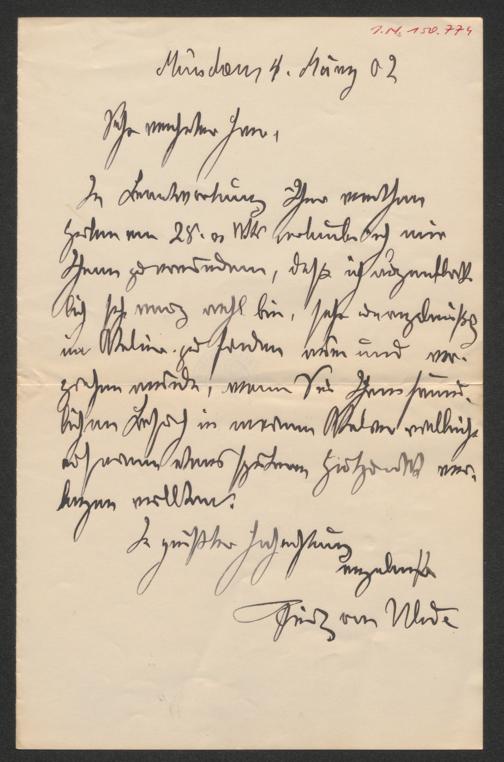 I.N. 158.774
München, 4. März 02
Sehr verehrter Herr,
In Beantwortung Ihrer werthen
Zeilen vom 28. v. Mts erlaube ich mir
Ihnen zu erwidern, daß ich augenblick-
lich sehr wohl bin, sehr
im Atelier zu finden und vor-
ziehen würde, wenn Sie Ihren freund-
lichen Besuch in meinem Atelier vielleicht
auf einen etwas späteren Zeitpunkt ver-
legen wollten.
In größter Hochachtung
ergebenst
Fritz von Uhde